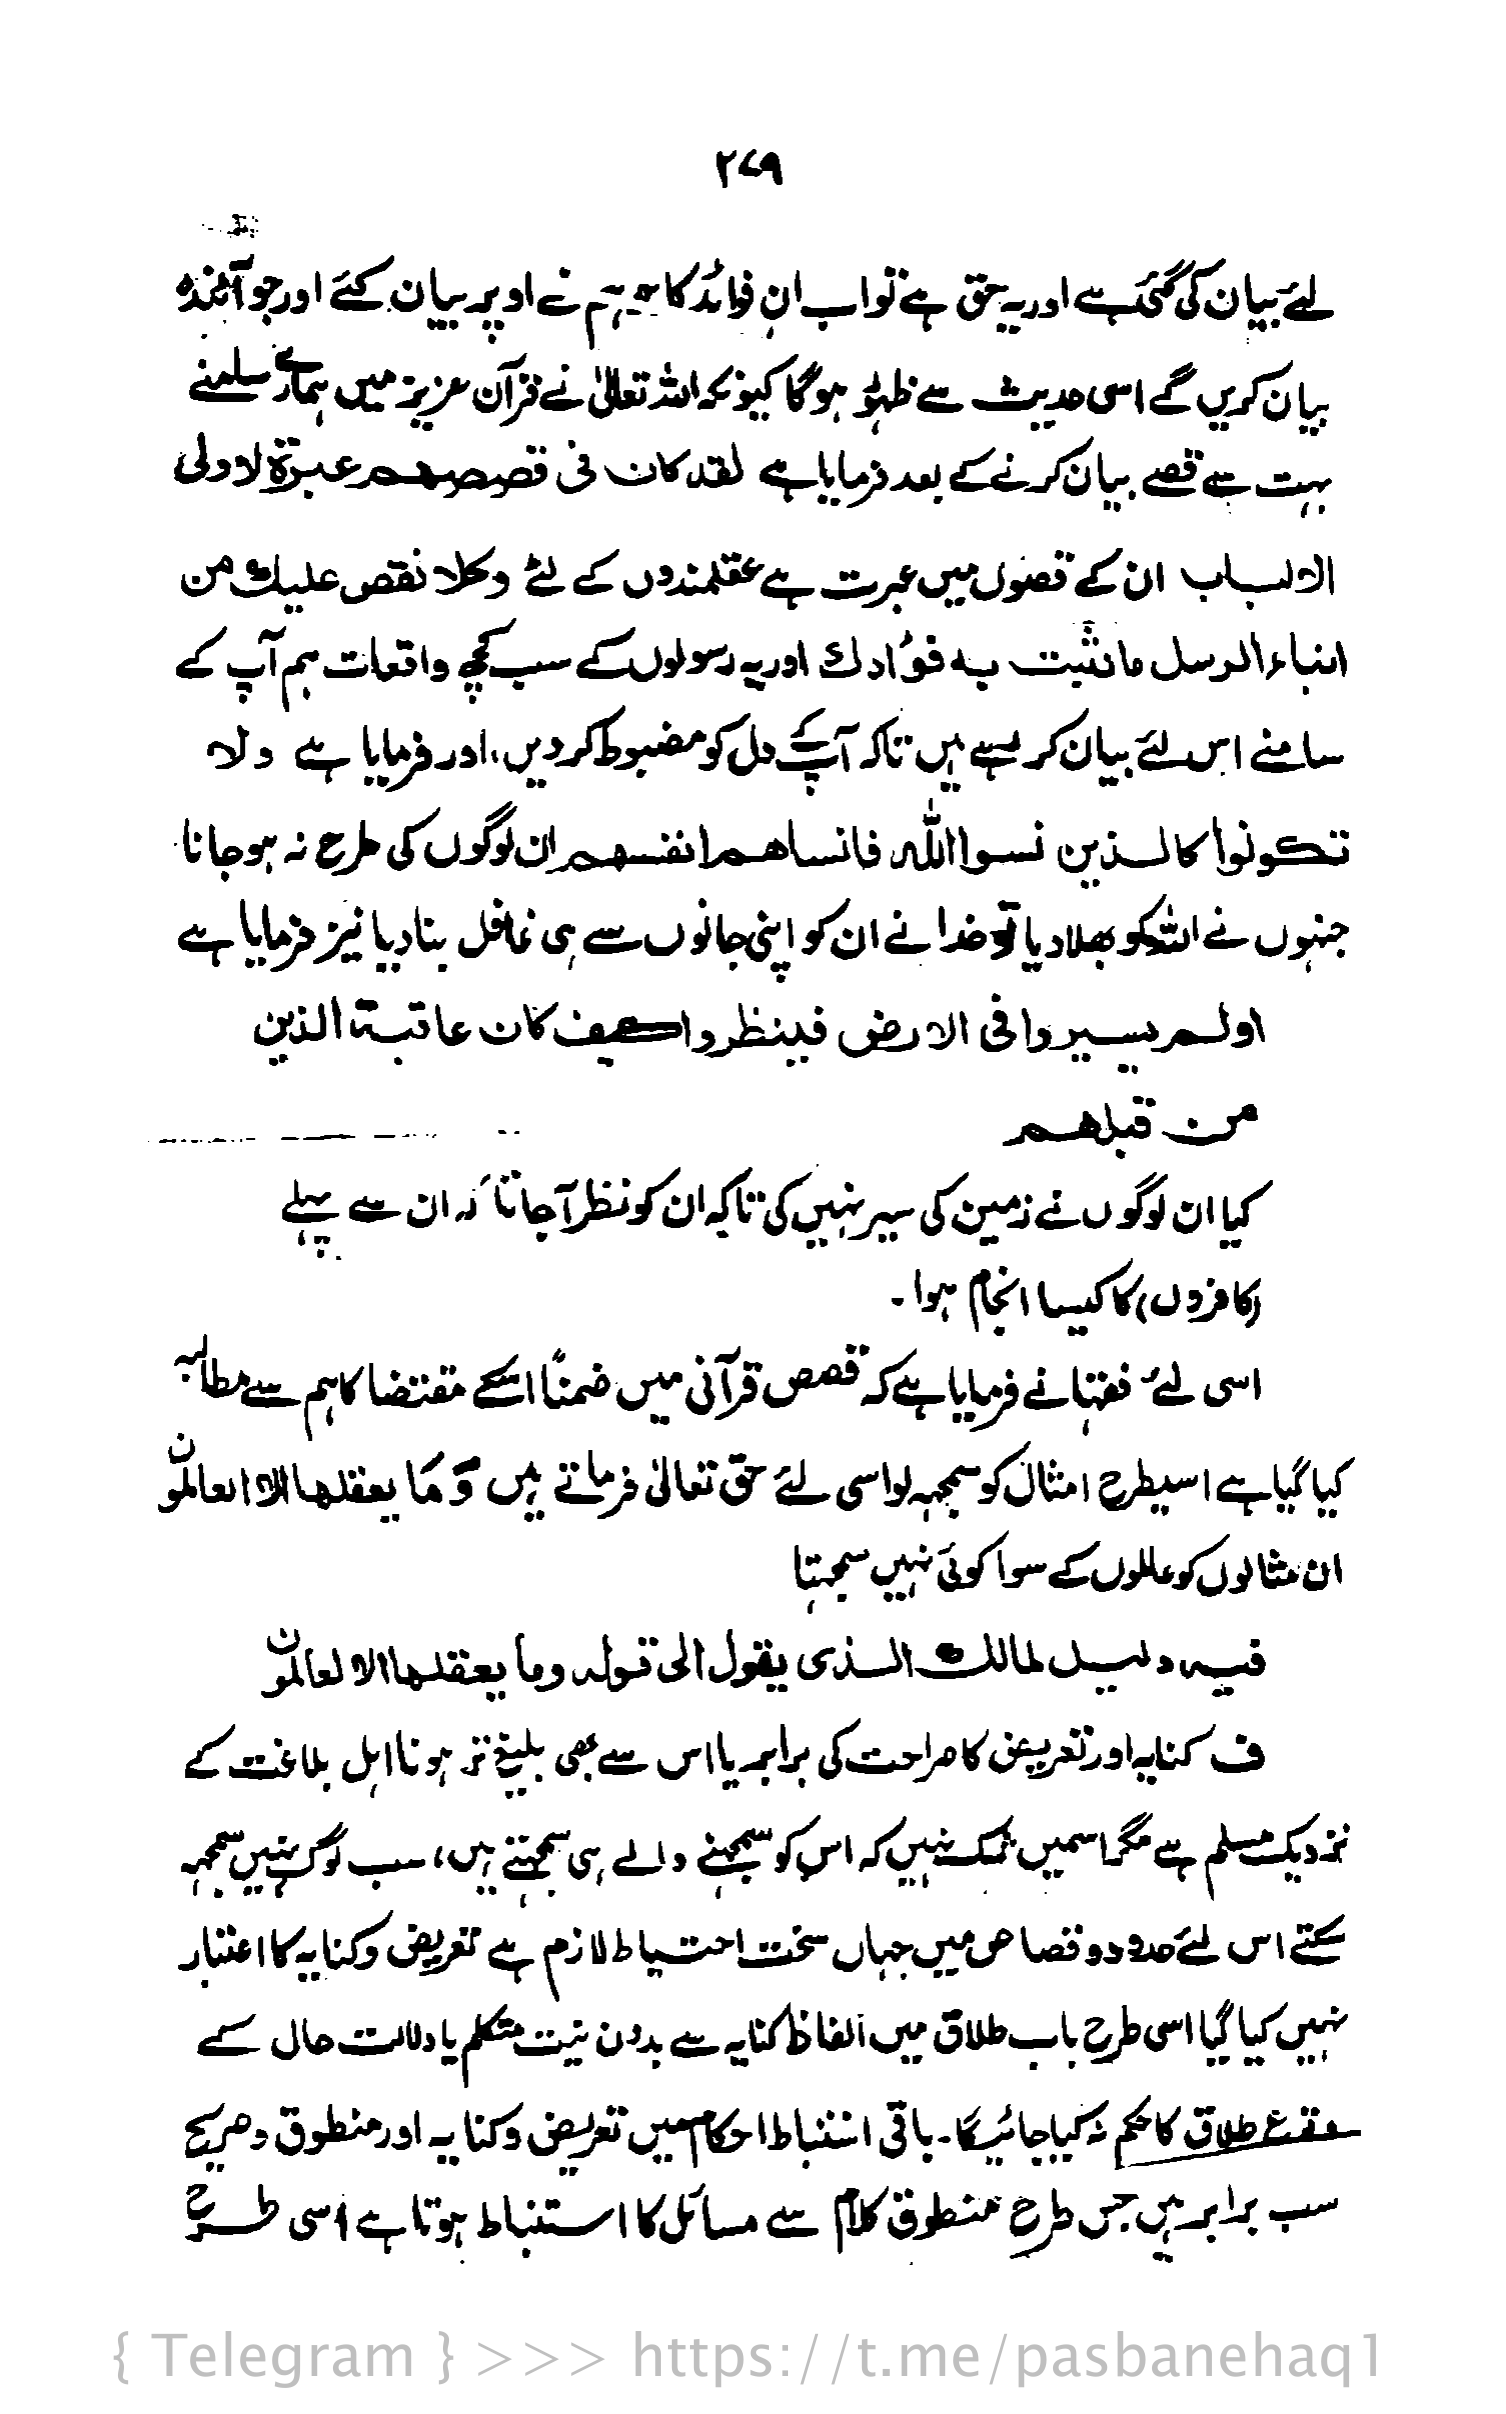 ۲۷۹
لئے بیان کی گئی ہے اور یہ حق ہے تو اب ان فوائد کا جو ہم نے اوپر بیان کئے اور جو آئندہ
بیان کریں گے اسی حدیث سے ظہور ہوگا کیونکہ اللہ تعالیٰ نے قرآن عزیز میں ہمارے سامنے
بہت سے قصے بیان کرنے کے بعد فرمایا ہے لقد کان فی قصصھم عبرۃ لاولی
الالباب ان کے قصوں میں عبرت ہے عقلمندوں کے لئے وکلا نقص علیک من
انباء الرسل مانثبت بہ فؤادک اور یہ رسولوں کے سب کچھ واقعات ہم آپ کے
سامنے اس لئے بیان کر رہے ہیں تاکہ آپ کے دل کو مضبوط کردیں، اور فرمایا ہے ولا
تکونوا کالذین نسوا اللہ فانساھم انفسھم ان لوگوں کی طرح نہ ہو جانا
جنہوں نے اللہ کو بھلا دیا تو خدا نے ان کو اپنی جانوں سے ہی غافل بنا دیا نیز فرمایا ہے
اولم یسیروا فی الارض فینظروا کیف کان عاقبۃ الذین
من قبلھم
کیا ان لوگوں نے زمین کی سیر نہیں کی تاکہ ان کو نظر آجاتا کہ ان سے پہلے
(کافروں) کا کیسا انجام ہوا ۔
اسی لئے فقہا نے فرمایا ہے کہ قصص قرآنی میں ضمناً اسکے مقتضا کا ہم سے مطالبہ
کیا گیا ہے اسیطرح امثال کو سمجھ لو اسی لئے حق تعالیٰ فرماتے ہیں وَمَا یعقلھا الا العالمون
ان مثالوں کو عالموں کے سوا کوئی نہیں سمجہتا
فیہ دلیل لمالک الذی یقول الی قولہ وما یعقلھا الا العالمون
ف کنایہ اور تعریض کا صراحت کی برابر یا اس سے بھی بلیغ تر ہونا اہل بلاغت کے
نزدیک مسلم ہے مگر اسمیں شک نہیں کہ اس کو سمجہنے والے ہی سمجہتے ہیں، سب لوگ نہیں سمجہہ
سکتے اس لئے حدود و قصاص میں جہاں سخت احتیاط لازم ہے تعریض وکنایہ کا اعتبار
نہیں کیا گیا اسی طرح باب طلاق میں الفاظ کنایہ سے بدون نیت متکلم یا دلالت حال کے
وقوع طلاق کا حکم نہ کیا جائیگا۔ باقی استنباط احکام میں تعریض وکنایہ اور منطوق وصریح
سب برابر ہیں جس طرح منطوق کلام سے مسائل کا استنباط ہوتا ہے اسی طرح
{ Telegram } >>> https://t.me/pasbanehaq1